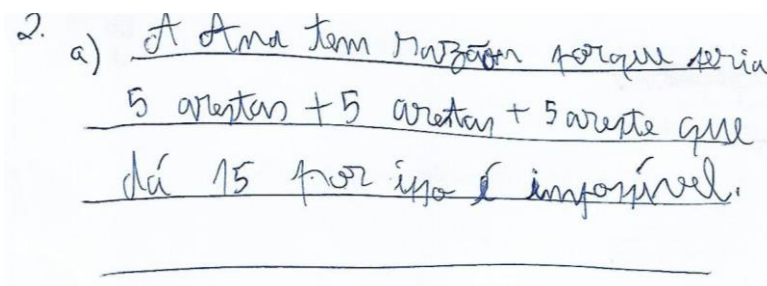 2.
a) A Ana tem razão porque seria
5 arestas + 5 arestas + 5 areste que
dá 15 por isso é impossível.